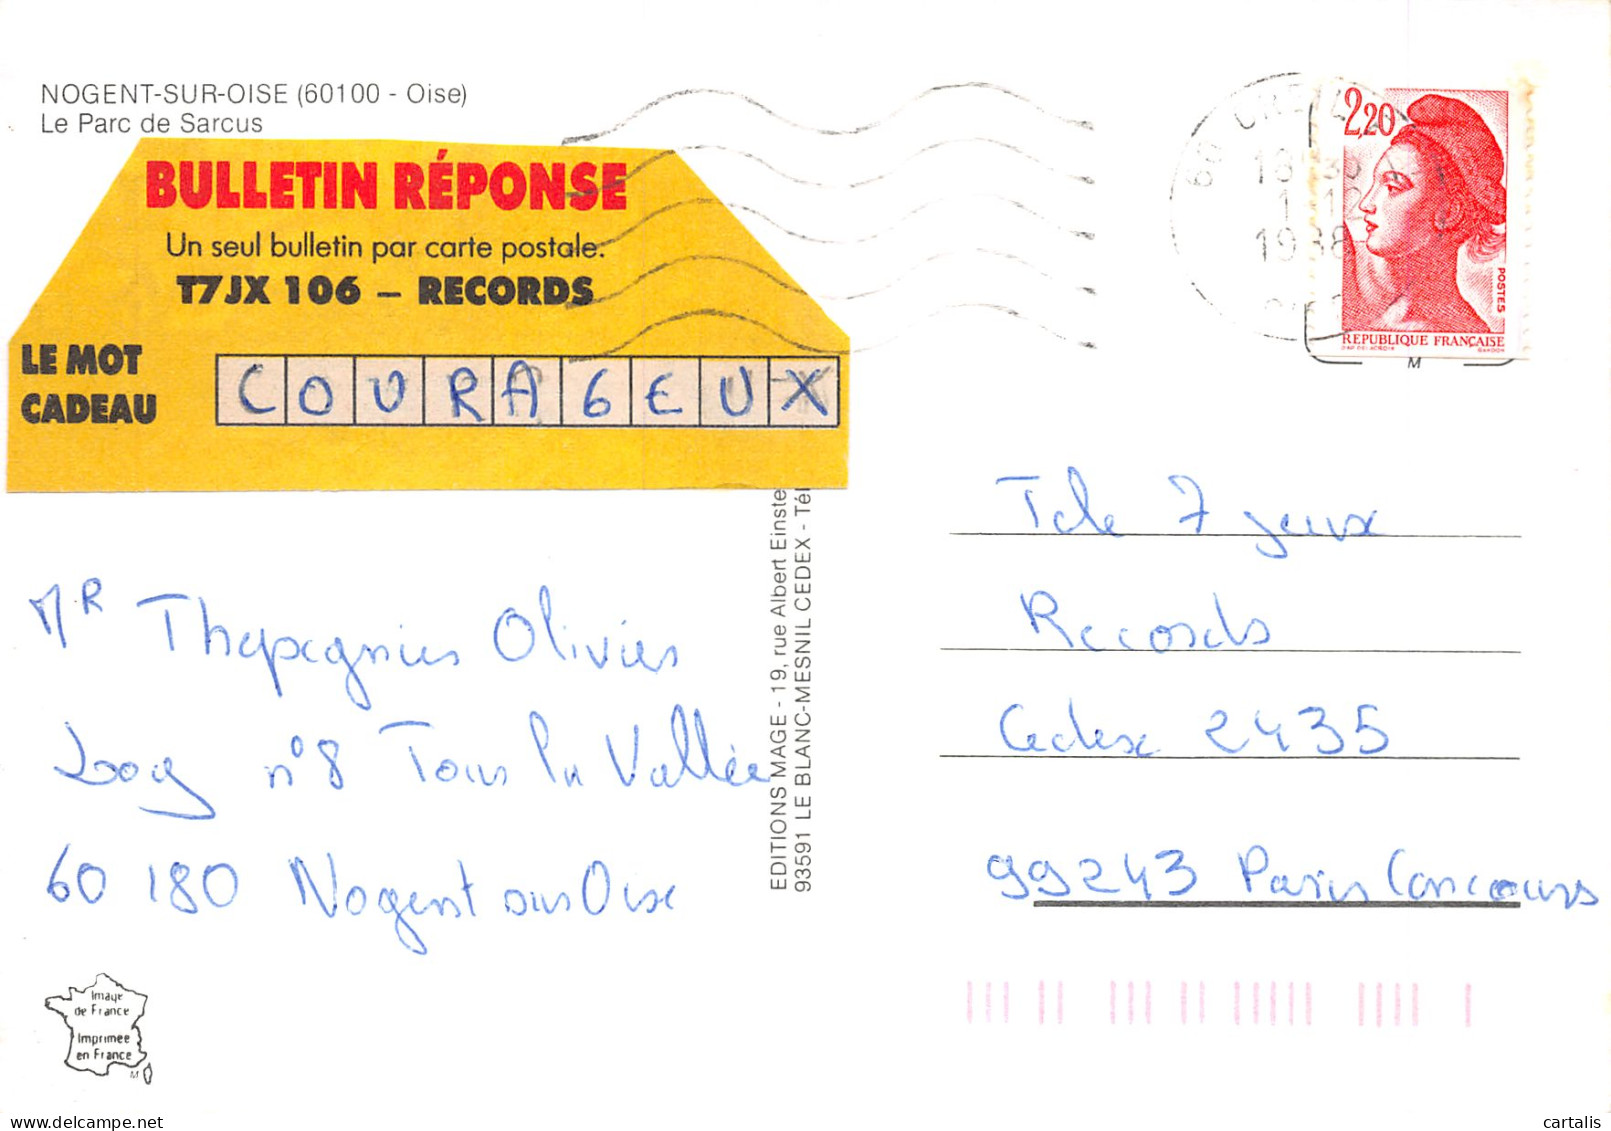 NOGENT-SUR-OISE (60100 - Oise)
Le Parc de Sarcus
BULLETIN RÉPONSE
Un seul bulletin par carte postale.
T7JX 106 – RECORDS
LE MOT
CADEAU
COURAGEUX
Mr Thepegnies Olivier
n°8 Tour la Vallée
60180 Nogent sur Oise
Image
de France
Imprimée
en France
M
EDITIONS MAGE - 19, rue Albert Einste
93591 LE BLANC-MESNIL CEDEX - Tél
60 CREIL
1988
2,20
POSTES
REPUBLIQUE FRANÇAISE
GANDON
M
Tele 7 jeux
Records
Cedex 2435
99243 Paris Concours
cartalis